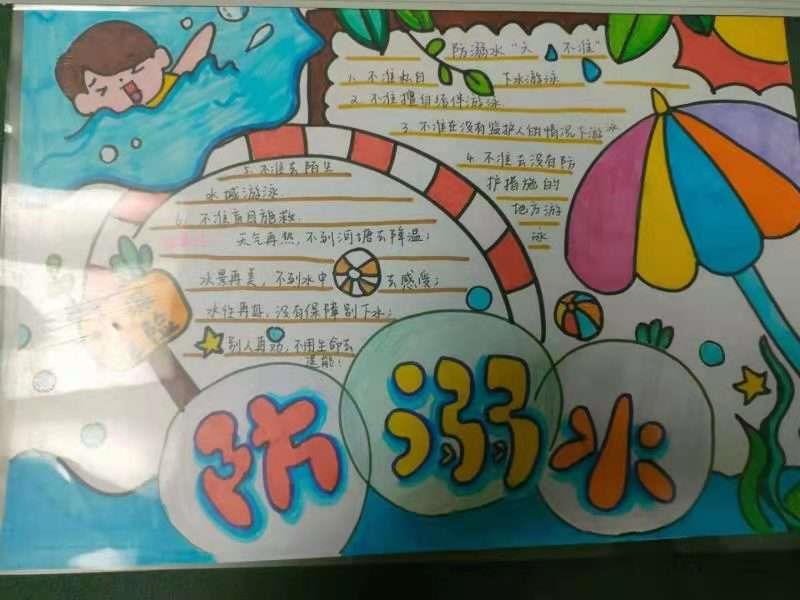 防溺水“六 不准”
1. 不准私自 下水游泳
2. 不准擅自结伴游泳
3. 不准在没有监护人的情况下游泳
4. 不准去没有防
护措施的
地方游
泳
5. 不准去陌生
水域游泳
6. 不准盲目施救.
天气再热，不到河塘去降温；
水景再美，不到水中 去感受；
水性再好，没有保障别下水；
别人再劝，不用生命去
逞能！
防溺水